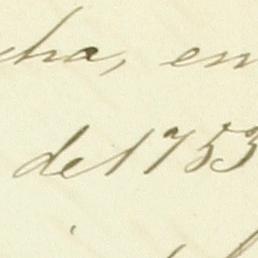 cha, en
de 1753